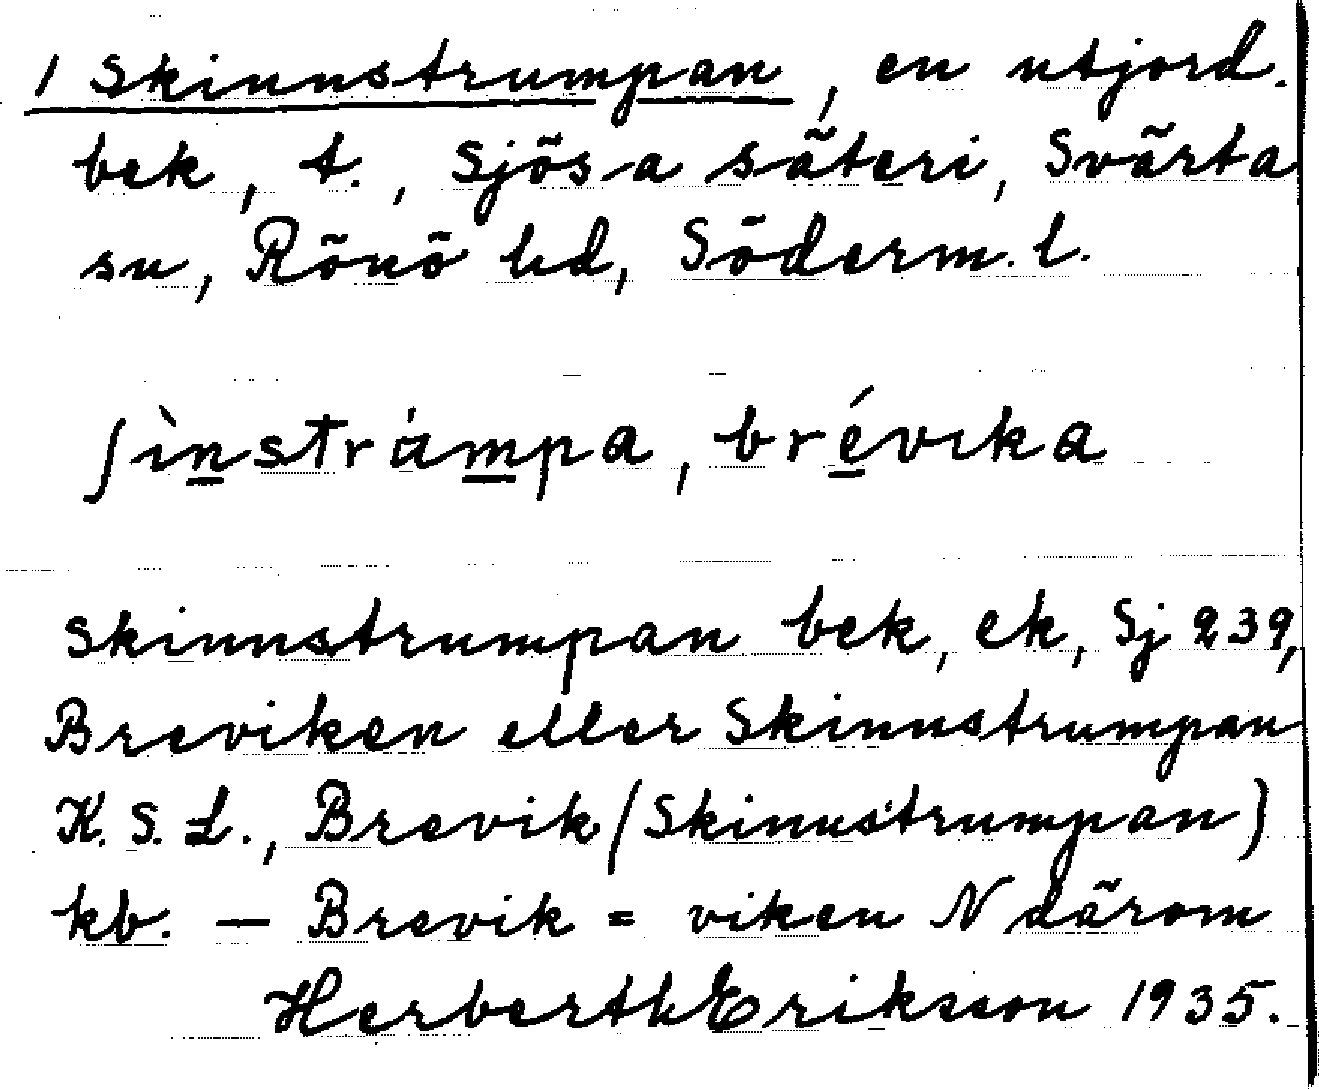 1 Skinnstrumpan, en utjord.
bek, t., Sjösa säteri, Svärta
sn, Rönö hd, Söderm. l.
ʃìnstrámpa, brévıka
Skinnstrumpan bek, ek, Sj 239,
Breviken eller Skinnstrumpan
K. S. L., Brevik (Skinnstrumpan)
kb. — Brevik = viken N därom
Herberth Eriksson 1935.